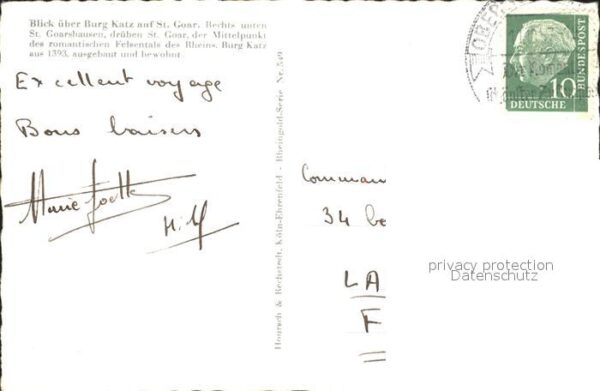 Blick über Burg Katz auf St. Goar. Rechts unten
St. Goarshausen, drüben St. Goar, der Mittelpunkt
des romantischen Felsentals des Rheins. Burg Katz
aus 1393, ausgebaut und bewohnt.
Excellent voyage
Bons baisers
Marie
Hoursch & Bechstedt, Köln-Ehrenfeld - Rheingold-Serie Nr. 549
OBER
10
DEUTSCHE
BUNDESPOST
Comman
34 be
LA
F
privacy protection
Datenschutz